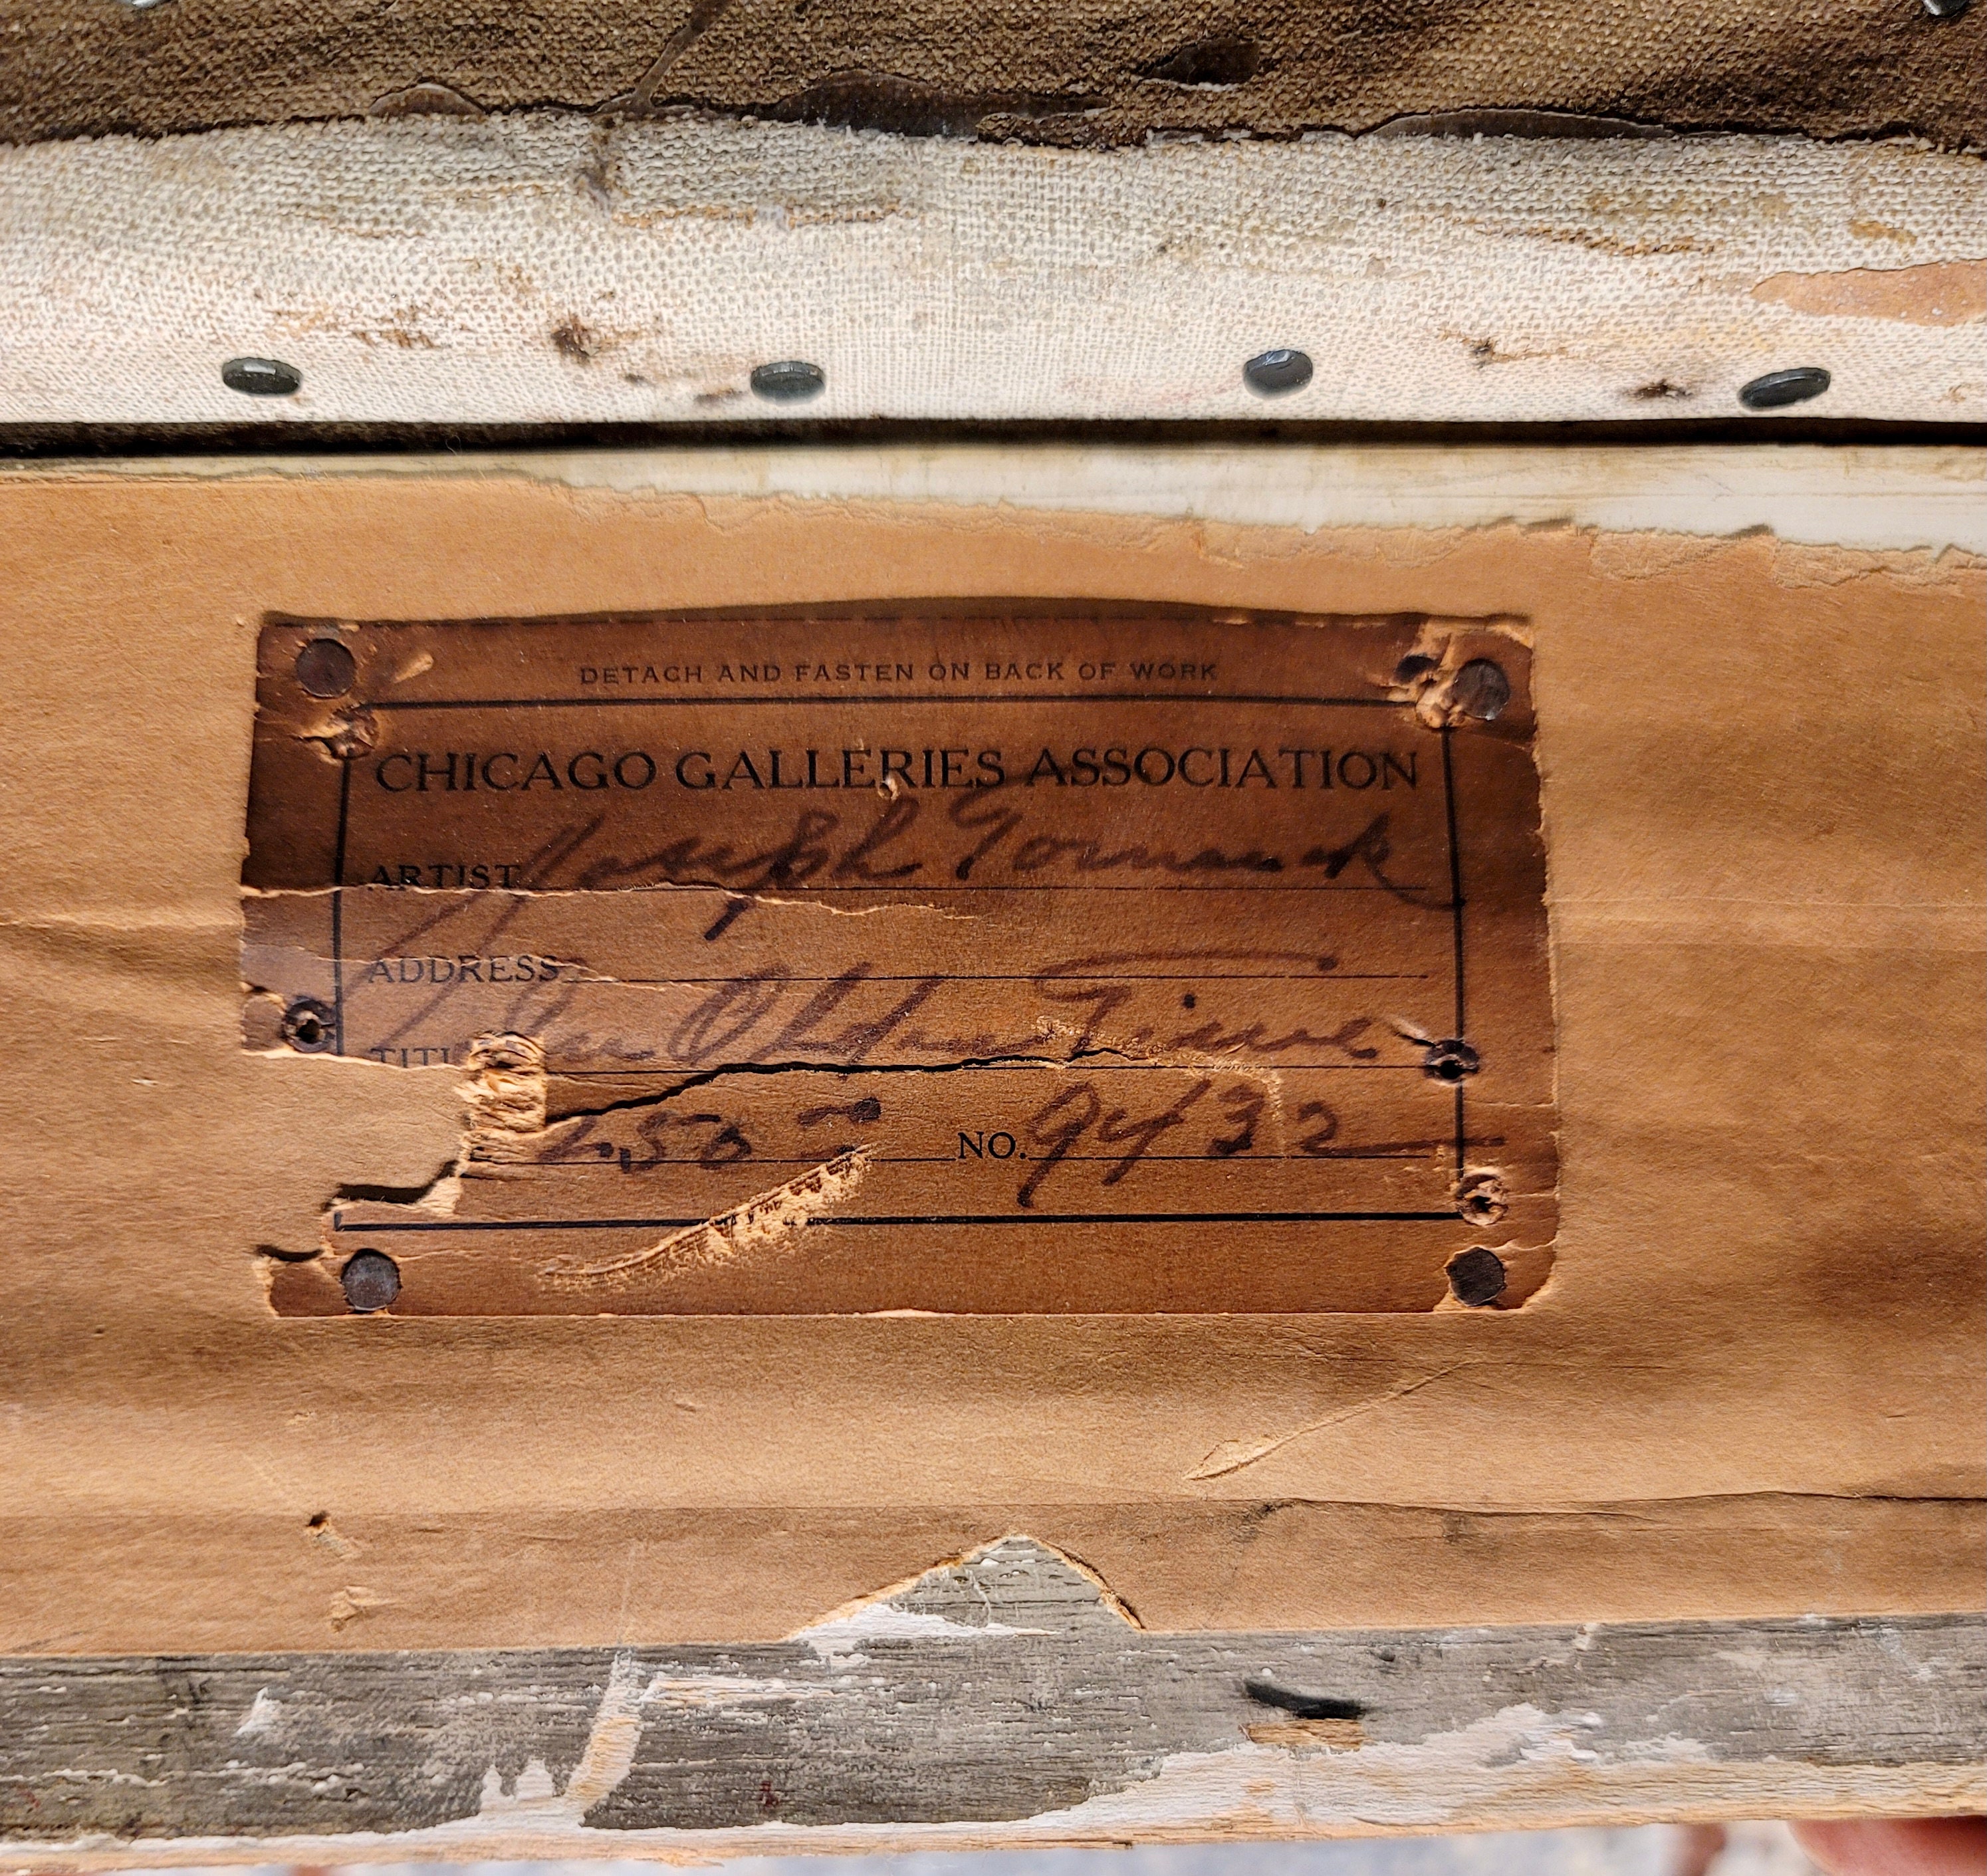 DETACH AND FASTEN ON BACK OF WORK
CHICAGO GALLERIES ASSOCIATION
ARTIST Joseph Tomanek
ADDRESS
TITL In Olden Time
NO. 9432